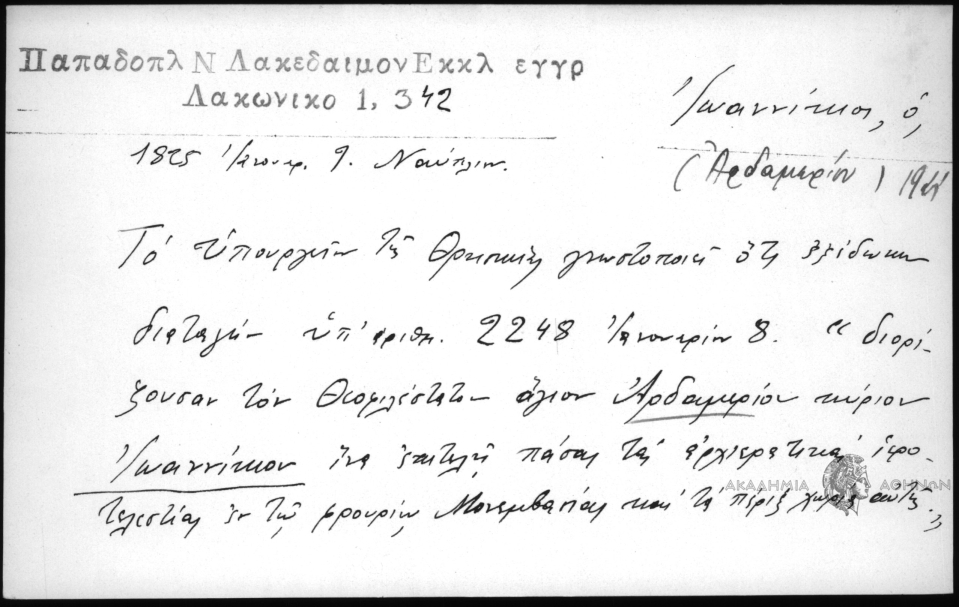 Παπαδοπλ Ν Λακεδαιμον Εκκλ εγγρ
Λακωνικο 1, 342
Ἰωαννίκιος, ὁ,
(Ἀρδαμερίου)
1825 Ἰανουαρ. 9. Ναύπλιον.
Τό Ὑπουργεῖον τῆς Θρησκείας γνωστοποιεῖ ὅτι ἐξέδωκεν
διαταγήν ὑπ' ἀριθμ. 2248 Ἰανουαρίου 8. "διορί-
ζουσαν τόν Θεοφιλέστατον ἅγιον Ἀρδαμερίου κύριον
Ἰωαννίκιον ἵνα ἐκτελῇ πάσας τάς ἀρχιερατικάς ἱερο-
τελεστίας ἐν τῷ φρουρίῳ Μονεμβασίας καί τά πέριξ χωρία αὐτῆς."
ΑΚΑΔΗΜΙΑ ΑΘΗΝΩΝ